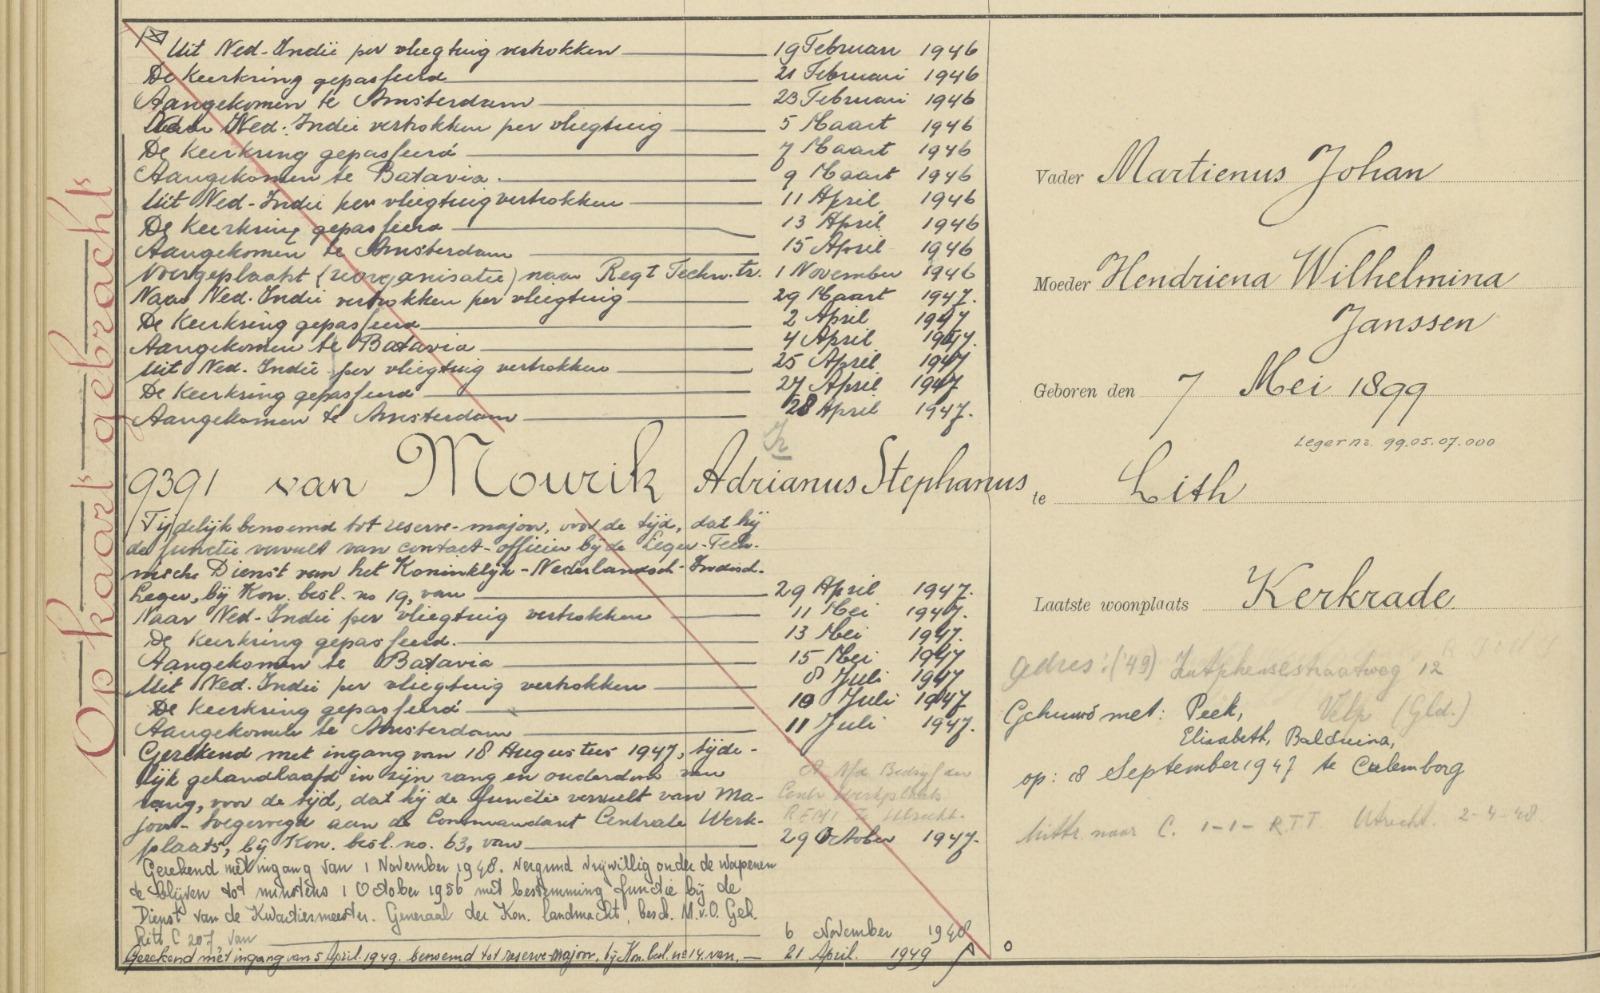 Uit Ned-Indië per vliegtuig vertrokken 19 Februari 1946
De Keerkring gepasseerd 21 Februari 1946
Aangekomen te Amsterdam 23 Februari 1946
Naar Ned.-Indië vertrokken per vliegtuig 5 Maart 1946
De Keerkring gepasseerd 7 Maart 1946
Aangekomen te Batavia. 9 Maart 1946
Uit Ned-Indië per vliegtuig vertrokken 11 April 1946
De Keerkring gepasseerd 13 April 1946
Aangekomen te Amsterdam 15 April 1946
Voorgeplaatst (reorganisatie) naar Regt Techn. tr. 1 November 1946
Naar Ned.-Indië vertrokken per vliegtuig 29 Maart 1947.
De Keerkring gepasseerd 2 April 1947
Aangekomen te Batavia 4 April 1947.
Uit Ned.-Indië per vliegtuig vertrokken 25 April 1947
De Keerkring gepasseerd 27 April 1947
Aangekomen te Amsterdam 28 April 1947.
Op kaart gebracht
9391 van Mourik Adrianus Stephanus
Tijdelijk benoemd tot reserve-majoor, voor de tijd, dat hij
de functie vervult van contact-officier bij de Leger-Tech-
nische Dienst van het Koninklijk-Nederlandsch-Indisch-
Leger, bij Kon. besl. no 19, van 29 April 1947.
Naar Ned-Indië per vliegtuig vertrokken 11 Mei 1947.
De Keerkring gepasseerd. 13 Mei 1947.
Aangekomen te Batavia 15 Mei 1947
Uit Ned.-Indië per vliegtuig vertrokken 8 Juli 1947
De Keerkring gepasseerd 10 Juli 1947
Aangekomen te Amsterdam 11 Juli 1947.
Gerekend met ingang van 18 Augustus 1947, tijde-
lijk gehandhaafd in zijn rang en ouderdom van
rang, voor de tijd, dat hij de functie vervult van Ma-
joor-toegevoegd aan de Commandant Centrale Werk-
plaats, bij Kon. besl. no. 63, van 29 October 1947.
Centr Werkplaats
Utrecht.
Gerekend met ingang van 1 November 1948. vergund vrijwillig onder de wapenen
te blijven tot minstens 1 October 1956 met bestemming functie bij de
Dienst van de Kwartiermeester. Generaal der Kon. landmacht, besch. M.v.O. Geh.
Litt. C 207, van 6 November 1948
Gerekend met ingang van 5 April 1949. benoemd tot reserve-majoor, bij Kon. besl. no 14. van. 21 April. 1949
Vader Martienus Johan
Moeder Hendriena Wilhelmina
Janssen
Geboren den 7 Mei 1899
Legernr. 99.05.07.000
te Lith
Laatste woonplaats Kerkrade
adres: ('49) Zutphensestraatweg 12
Velp (Gld.)
Gehuwd met: Peek,
Elisabeth, Balduina,
op: 8 September 1947 te Culemborg
naar C. 1-1-RTT Utrecht. 2-4-48